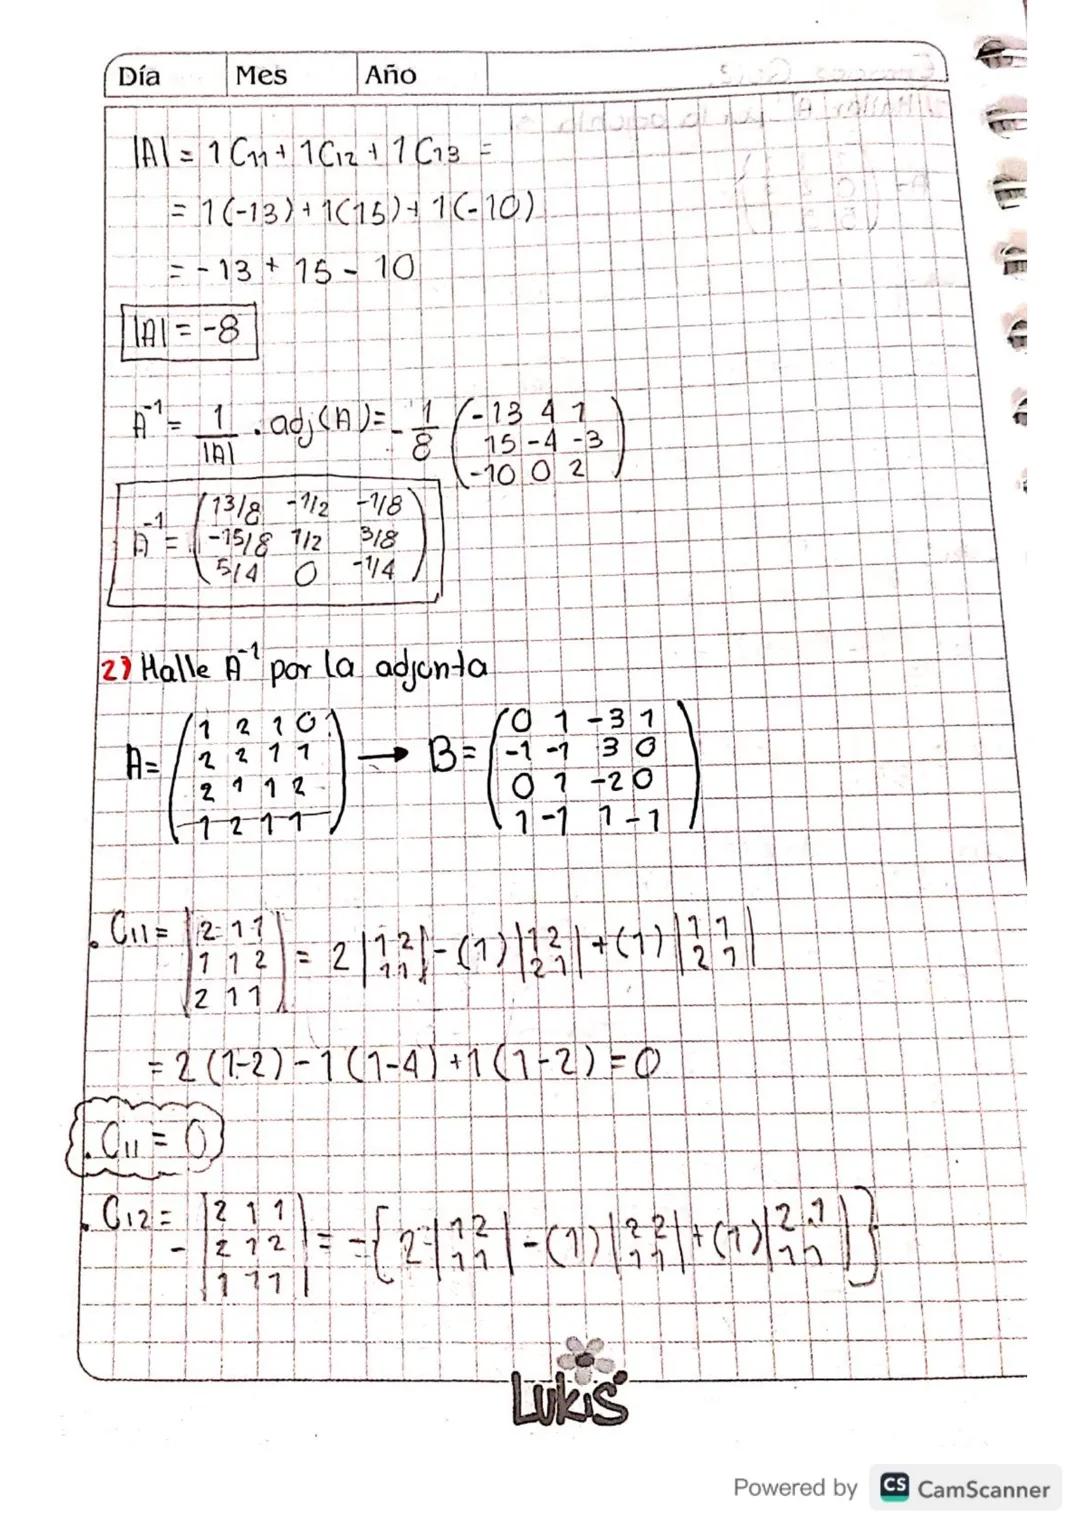 Día Mes Año
|A| = 1 C11 + 1 C12 + 1 C13 =
= 1(-13) + 1(15) + 1(-10)
= -13 + 15 - 10
|A| = -8
A^-1 = 1/|A| . adj(A) = -1/8 (-13 4 1
15 -4 -3
-10 0 2)
A^-1 = (13/8 -1/2 -1/8
-15/8 1/2 3/8
5/4 0 -1/4)
2) Halle A^-1 por la adjunta
A= (1 2 1 0
2 2 1 1
2 1 1 2
1 2 1 1) → B= (0 1 -3 1
-1 -1 3 0
0 1 -2 0
1 -1 1 -1)
. C11 = |2 1 1
1 1 2
2 1 1| = 2 |1 2
1 1| - (1) |1 2
2 1| + (1) |1 1
2 1|
= 2 (1-2) - 1 (1-4) + 1 (1-2) = 0
. C11 = 0
. C12 = - |2 1 1
2 1 2
1 1 1| = -{2 |1 2
1 1| - (1) |2 2
1 1| + (1) |2 1
1 1|}
LUKiS
Powered by CS CamScanner